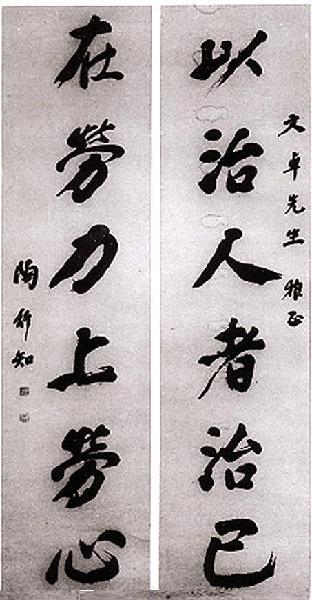 文卓先生 雅正
以治人者治己
在勞力上勞心
陶行知